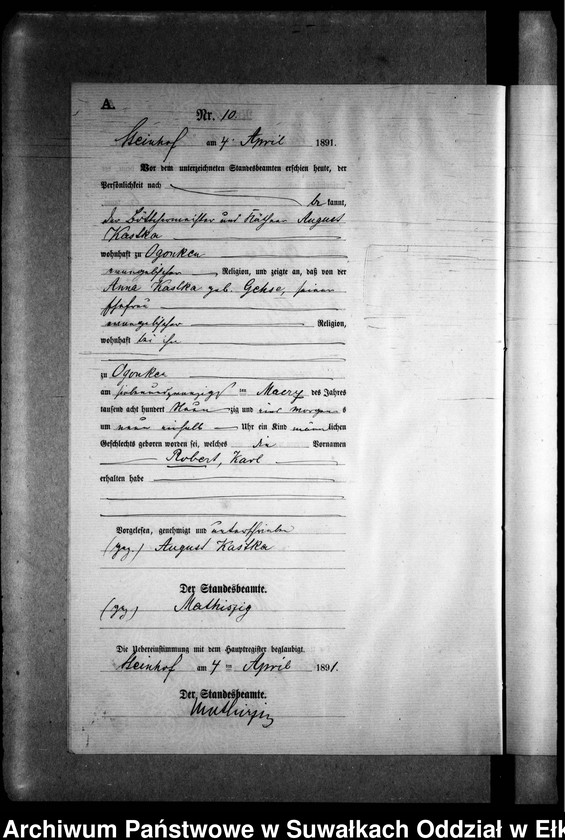 A.
Nr. 10
Steinhof am 4. April 1891.
Vor dem unterzeichneten Standesbeamten erschien heute, der
Persönlichkeit nach
be kannt,
der Böttchermeister und Käthner August
Kastka
wohnhaft zu Ogonken
evangelischer Religion, und zeigte an, daß von der
Anna Kastka geb. Gehse, seiner
Ehefrau
evangelischer Religion,
wohnhaft bei ihm
zu Ogonken
am siebenundzwanzigst en Maerz des Jahres
tausend acht hundert Neun zig und eins Morgen s
um neun einhalb Uhr ein Kind männ lichen
Geschlechts geboren worden sei, welches die Vornamen
Robert, Karl
erhalten habe
Vorgelesen, genehmigt und unterschrieben
(gez.) August Kastka
Der Standesbeamte.
(gez) Mathiszig
Die Uebereinstimmung mit dem Hauptregister beglaubigt.
Steinhof am 4 ten April 1891.
Der Standesbeamte.
Mathiszig
Archiwum Państwowe w Suwałkach Oddział w Ełk